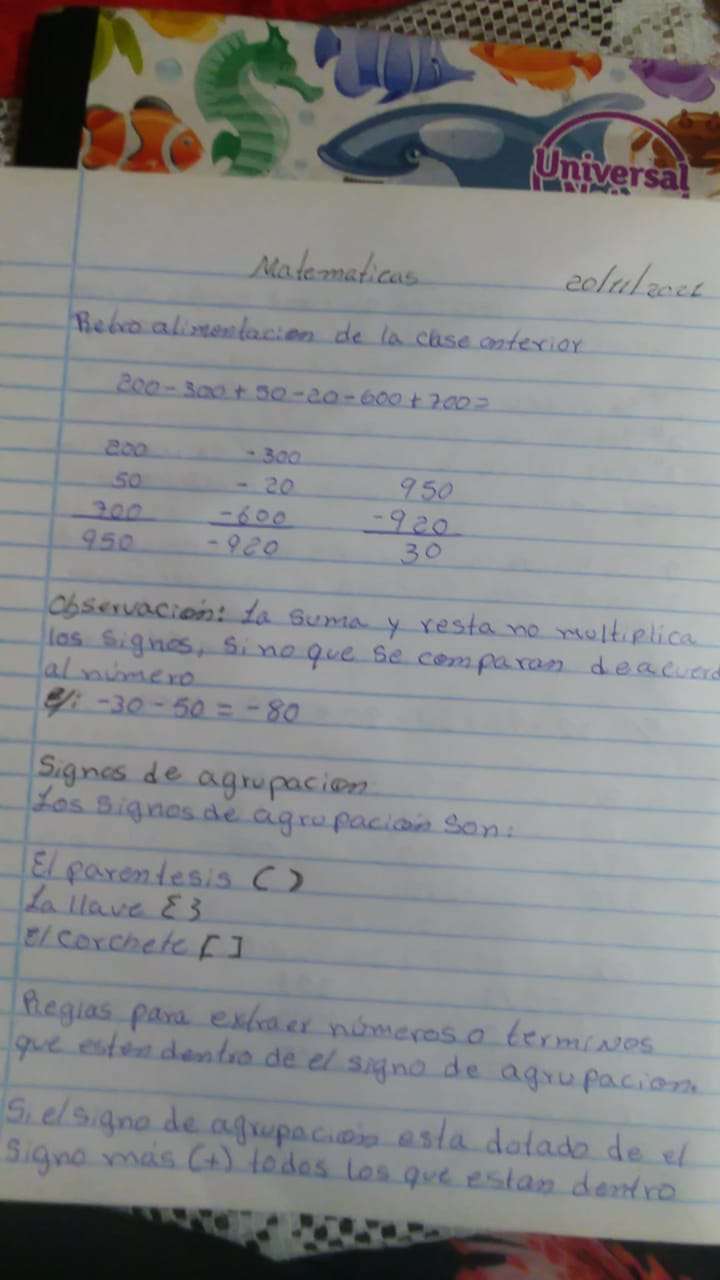 Universal
Matematicas 20/11/2021
Retro alimentacion de la clase anterior
200-300+50-20-600+700=
200 -300
50 - 20 950
700 -600 -920
950 -920 30
Observacion: La suma y resta no multiplica
los signos, sino que se comparan deacuerd
al número
ej: -30-50=-80
Signos de agrupacion
Los signos de agrupacion son:
El parentesis ( )
La llave { }
El corchete [ ]
Reglas para extraer números o terminos
que esten dentro de el signo de agrupacion.
Si el signo de agrupacion esta dotado de el
signo más (+) todos los que estan dentro